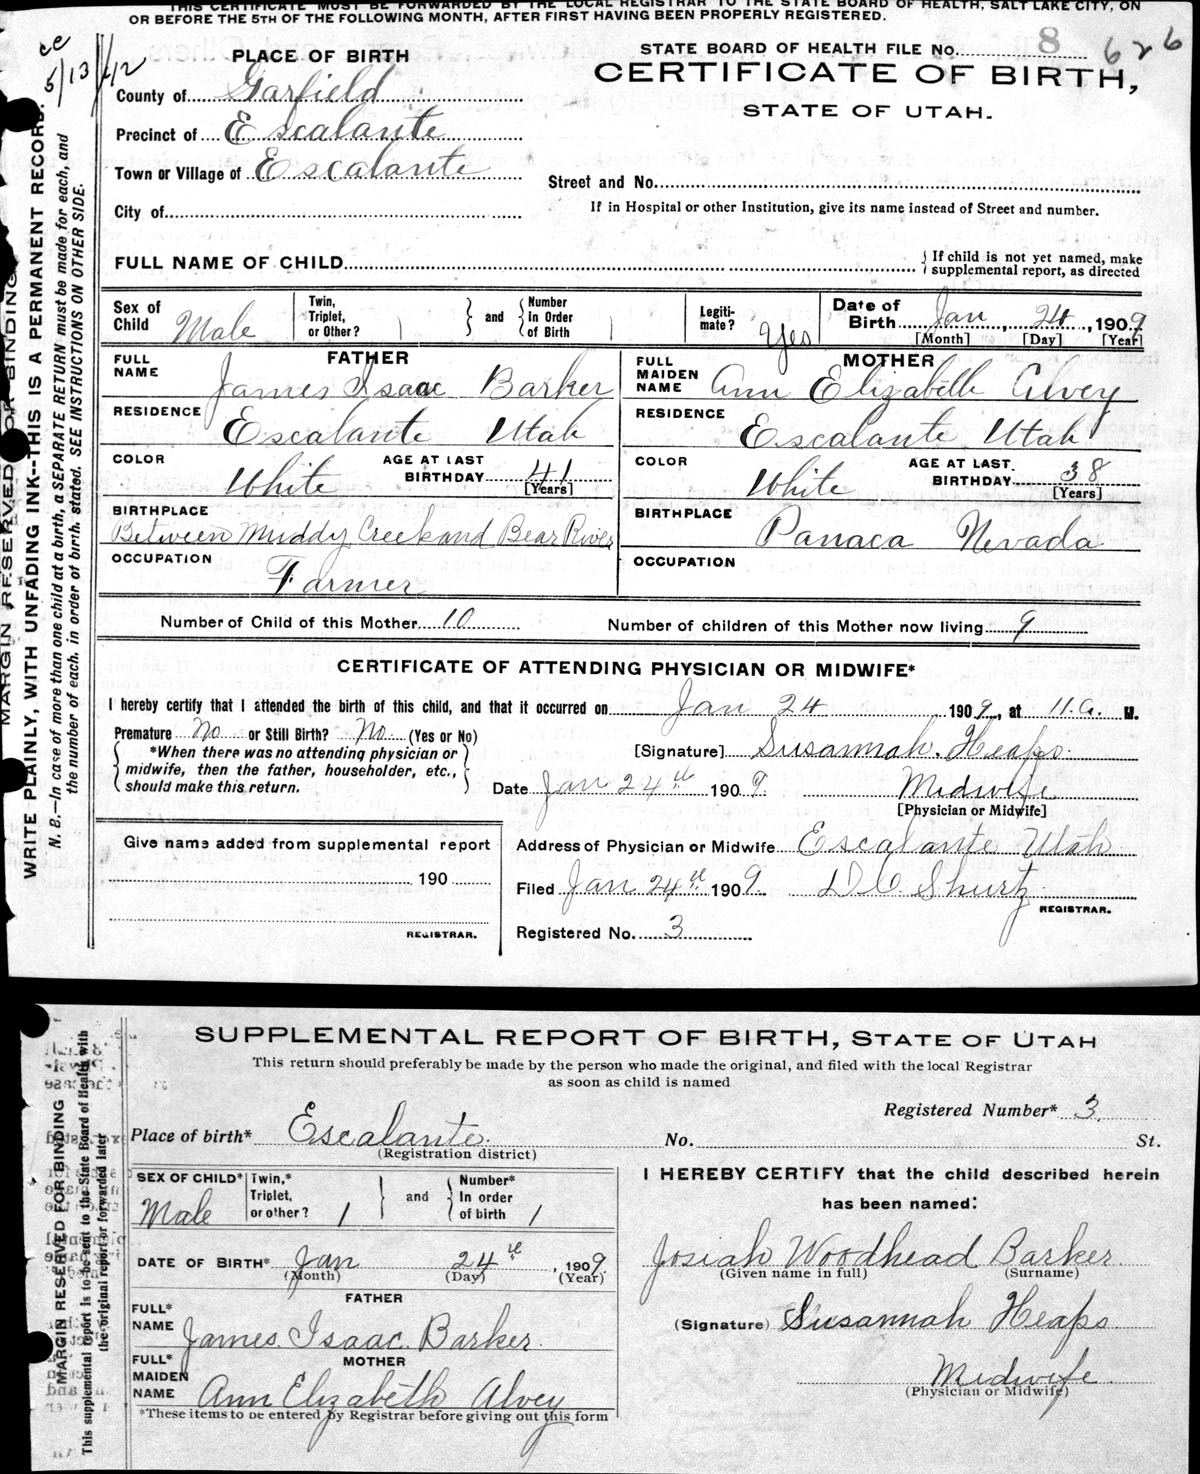 THIS CERTIFICATE MUST BE FORWARDED BY THE LOCAL REGISTRAR TO THE STATE BOARD OF HEALTH, SALT LAKE CITY, ON
OR BEFORE THE 5TH OF THE FOLLOWING MONTH, AFTER FIRST HAVING BEEN PROPERLY REGISTERED.
cc
5/13/42
PLACE OF BIRTH
County of Garfield
Precinct of Escalante
Town or Village of Escalante
City of
STATE BOARD OF HEALTH FILE No. 8 626
CERTIFICATE OF BIRTH,
STATE OF UTAH.
Street and No.
If in Hospital or other Institution, give its name instead of Street and number.
FULL NAME OF CHILD
If child is not yet named, make
supplemental report, as directed
Sex of Child Male
Twin, Triplet, or Other?
and
Number In Order of Birth
Legiti-mate? Yes
Date of Birth Jan, 24, 1909
[Month] [Day] [Year]
FATHER
FULL NAME James Isaac Barker
RESIDENCE Escalante Utah
COLOR White
AGE AT LAST BIRTHDAY 41
[Years]
BIRTHPLACE
Between Muddy Creek and Bear River
OCCUPATION Farmer
MOTHER
FULL MAIDEN NAME Ann Elizabeth Alvey
RESIDENCE Escalante Utah
COLOR White
AGE AT LAST BIRTHDAY 38
[Years]
BIRTHPLACE Panaca Nevada
OCCUPATION
Number of Child of this Mother 10
Number of children of this Mother now living 9
CERTIFICATE OF ATTENDING PHYSICIAN OR MIDWIFE*
I hereby certify that I attended the birth of this child, and that it occurred on Jan 24 1909, at 11.a. M.
Premature No or Still Birth? No (Yes or No)
*When there was no attending physician or
midwife, then the father, householder, etc.,
should make this return.
[Signature] Susannah. Heaps.
Date Jan 24th 1909. Midwife
[Physician or Midwife]
Give name added from supplemental report
190
REGISTRAR.
Address of Physician or Midwife Escalante Utah
Filed Jan 24th 1909 D C. Shurtz
REGISTRAR.
Registered No. 3
MARGIN RESERVED FOR BINDING
WRITE PLAINLY, WITH UNFADING INK--THIS IS A PERMANENT RECORD.
N. B.—In case of more than one child at a birth, a SEPARATE RETURN must be made for each, and
the number of each, in order of birth, stated. SEE INSTRUCTIONS ON OTHER SIDE.
SUPPLEMENTAL REPORT OF BIRTH, STATE OF UTAH
This return should preferably be made by the person who made the original, and filed with the local Registrar
as soon as child is named
Registered Number* 3
Place of birth* Escalante. No. St.
(Registration district)
SEX OF CHILD* Male
Twin,* Triplet, or other? 1
and
Number* In order of birth 1
DATE OF BIRTH* Jan 24th, 1909.
(Month) (Day) (Year)
FATHER
FULL* NAME James. Isaac. Barker.
MOTHER
FULL* MAIDEN NAME Ann Elizabeth Alvey
*These items to be entered by Registrar before giving out this form
I HEREBY CERTIFY that the child described herein
has been named:
Josiah Woodhead Barker.
(Given name in full) (Surname)
(Signature) Susannah Heaps.
Midwife.
(Physician or Midwife)
MARGIN RESERVED FOR BINDING
This supplemental report is to be sent to the State Board of Health with
the original report or forwarded later